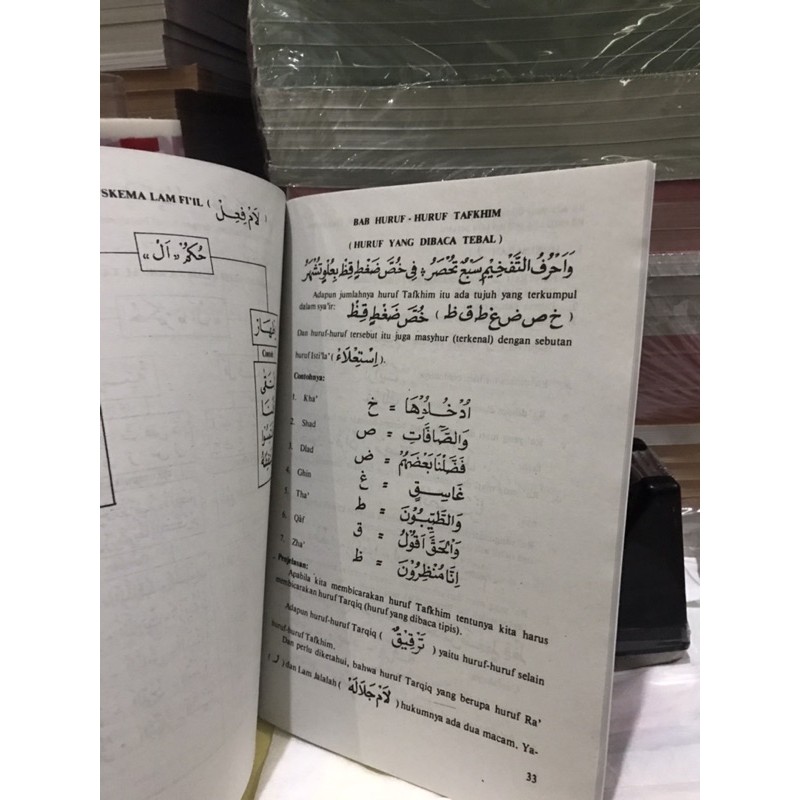 SKEMA LAM FI'IL ( لَامْ فِعِلْ )
حُكْمُ « اَلْ »
BAB HURUF - HURUF TAFKHIM
( HURUF YANG DIBACA TEBAL )
وَاَحْرُفُ التَّفْخِيْمِ سَبْعٌ تُحْصَرُ ، فِى خُصَّ ضَغْطٍ قِظْ بِعُلْوٍ تُشْهَرُ
Adapun jumlahnya huruf Tafkhim itu ada tujuh yang terkumpul
dalam sya'ir: خُصَّ ضَغْطٍ قِظْ ( خ ص ض غ ط ق ظ )
Dan huruf-huruf tersebut itu juga masyhur (terkenal) dengan sebutan
huruf Isti'la' ( اِسْتِعْلَاءْ ).
Contohnya:
1. Kha' خ = اُدْخُلُوْهَا
2. Shad ص = وَالصَّافَّاتِ
3. Dlad ض = فَضَّلْنَا بَعْضَهُمْ
4. Ghin غ = غَاسِقٍ
5. Tha' ط = وَالطَّيِّبُوْنَ
6. Qaf ق = وَالْحَقَّ اَقُوْلُ
7. Zha' ظ = اِنَّا مُنْظِرُوْنَ
Penjelasan:
Apabila kita membicarakan huruf Tafkhim tentunya kita harus
membicarakan huruf Tarqiq (huruf yang dibaca tipis).
Adapun huruf-huruf Tarqiq ( تَرْقِيْقٌ ) yaitu huruf-huruf selain
huruf-huruf Tafkhim.
Dan perlu diketahui, bahwa huruf Tarqiq yang berupa huruf Ra'
( ر ) dan Lam Jalalah ( لَامْ جَلَالَهْ ) hukumnya ada dua macam. Ya-
33